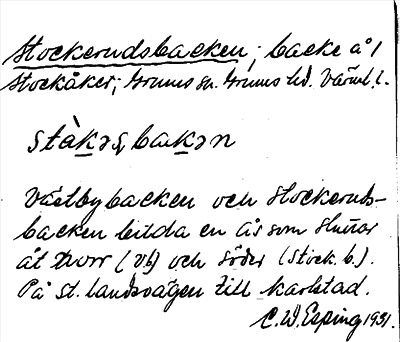 Stockerudsbacken; backe å /
Stockåker; Grums sn. Grums hd. Värml. l.
stàkəsbakən
Västbybacken och Stockeruds-
backen bilda en ås som sluttar
åt norr (Vb) och söder (Stock. b.).
På st. landsvägen till Karlstad.
C. W. Esping 1931.